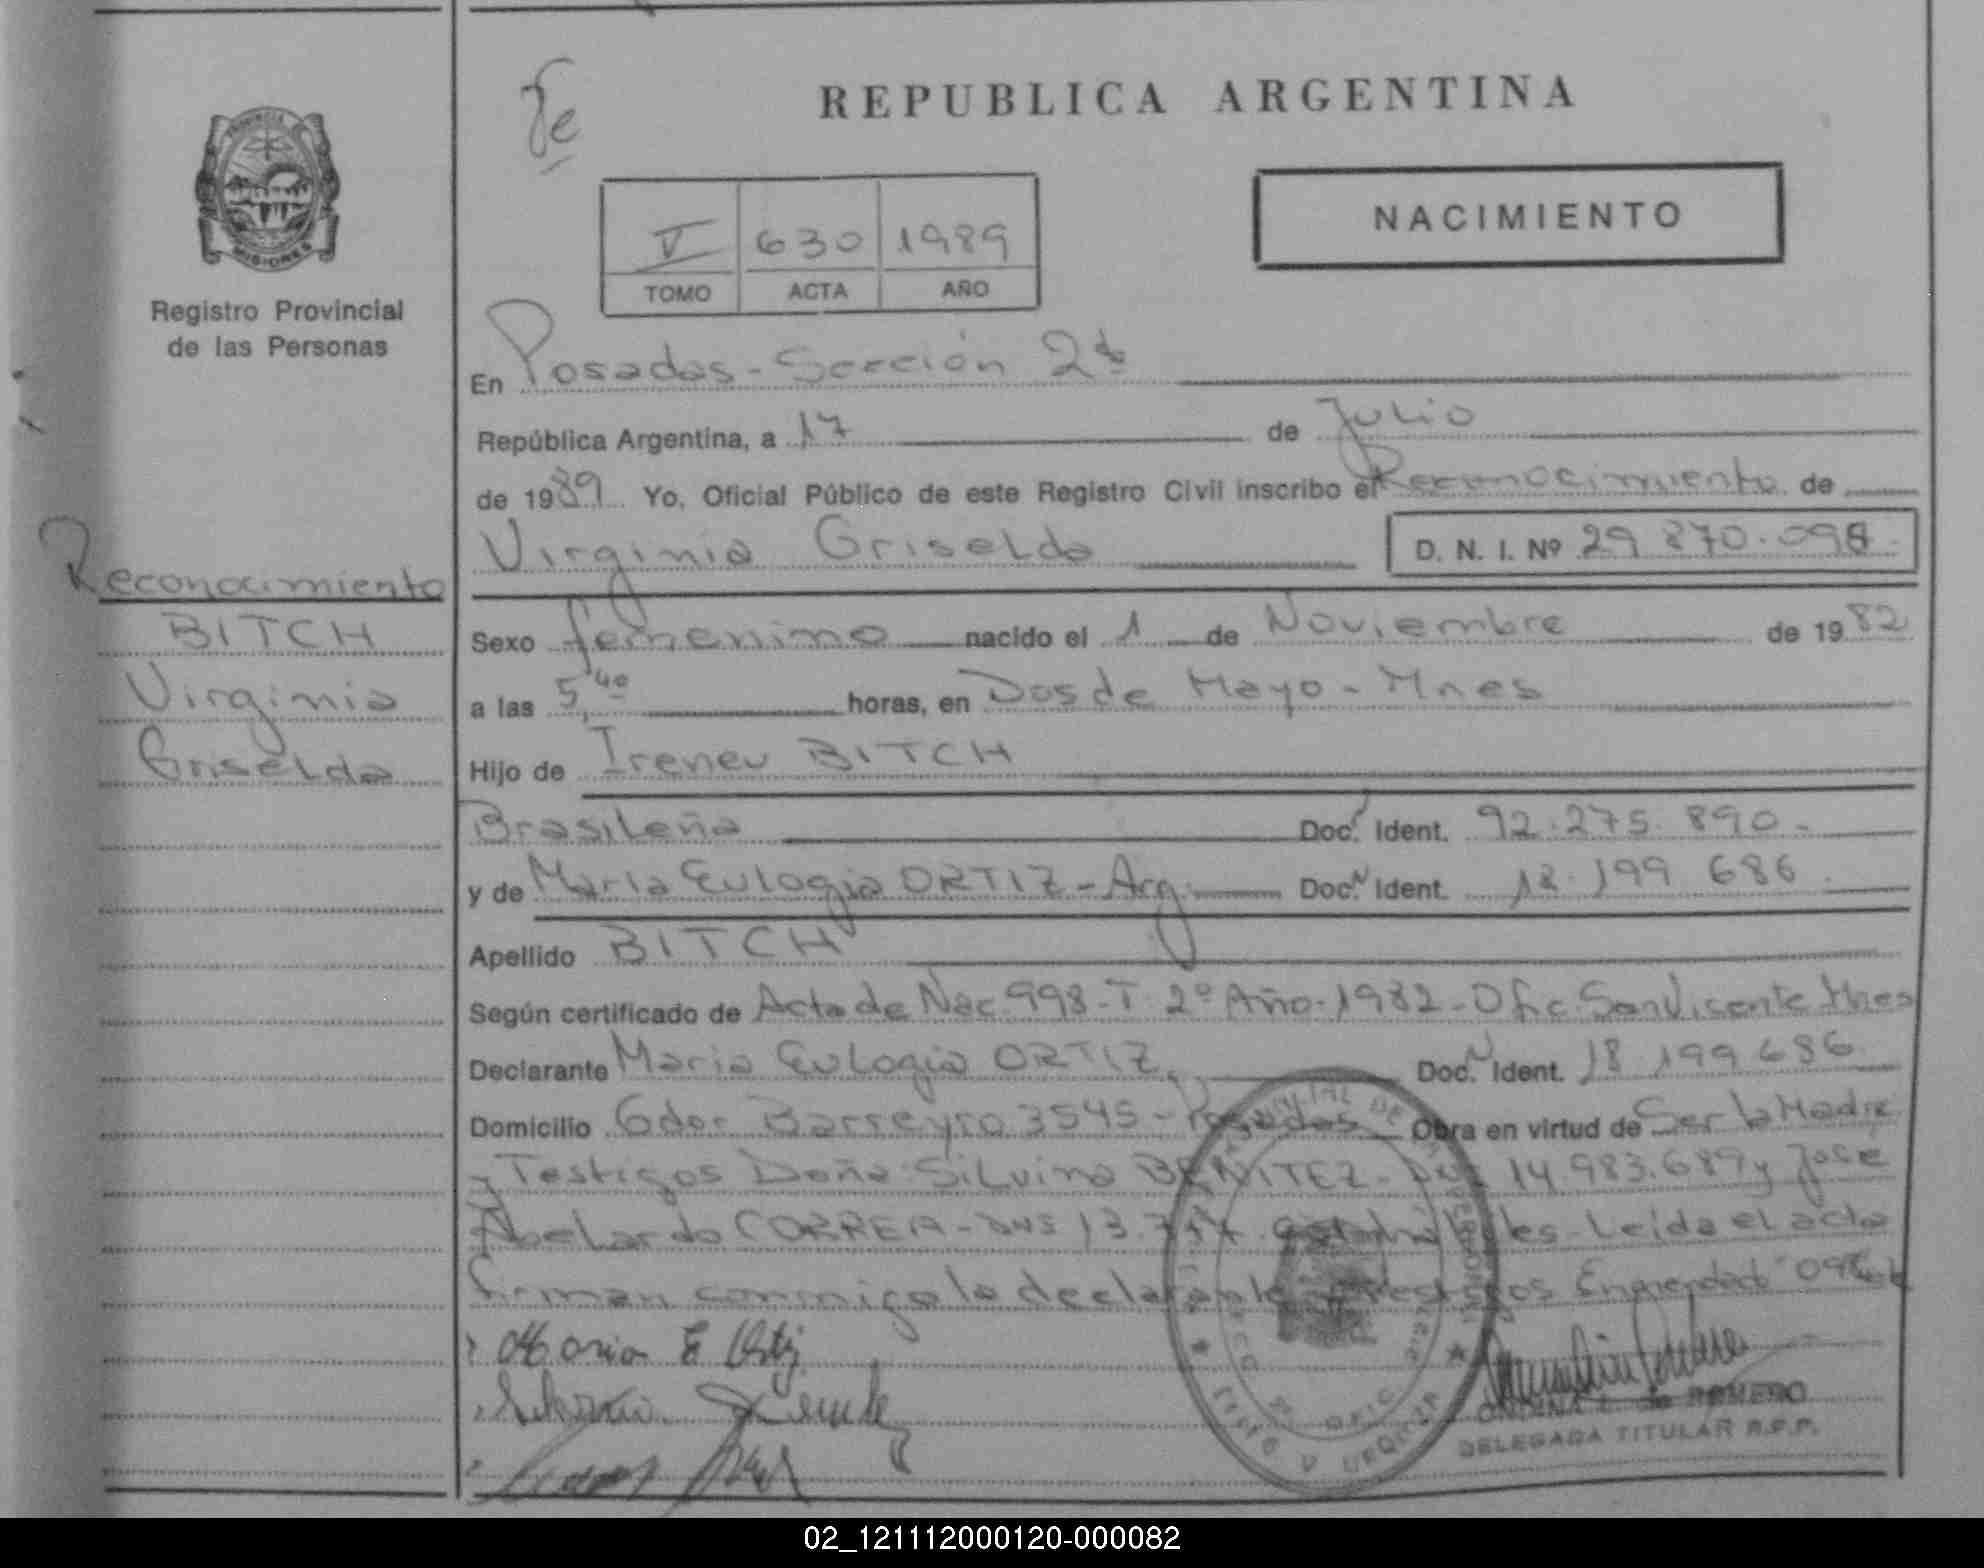 Fe
REPUBLICA ARGENTINA
NACIMIENTO
V 630 1989
TOMO ACTA AÑO
PROVINCIA DE
MISIONES
Registro Provincial
de las Personas
En Posadas - Sección 2da
República Argentina, a 17 de Julio
de 1989 Yo, Oficial Público de este Registro Civil inscribo el Reconocimiento de
Virginia Griselda D. N. I. Nº 29 870.098
Reconocimiento
BITCH
Virginia
Griselda
Sexo femenino nacido el 1 de Noviembre de 1982
a las 5,40 horas, en Dos de Mayo - Mnes
Hijo de Ireneu BITCH
Brasileña Doc. Ident. 92.275.890-
y de María Eulogia ORTIZ - Arg. Doc. Ident. 18.199 686
Apellido BITCH
Según certificado de Acta de Nac. 998-T. 2º Año-1982-Ofic. San Vicente Mnes
Declarante María Eulogia ORTIZ Doc. Ident. 18 199 686
Domicilio Gdor Barreyro 3545 - Posadas Obra en virtud de Ser la Madre
y Testigos Doña Silvina BENITEZ - DNI 14.983.689 y José
Abelardo CORREA - DNI 13. Leída el acta
firman conmigo la declarante y testigos Enmendado
Maria E Ortiz
de ROMERO
DELEGADA TITULAR R.P.P.
02_121112000120-000082